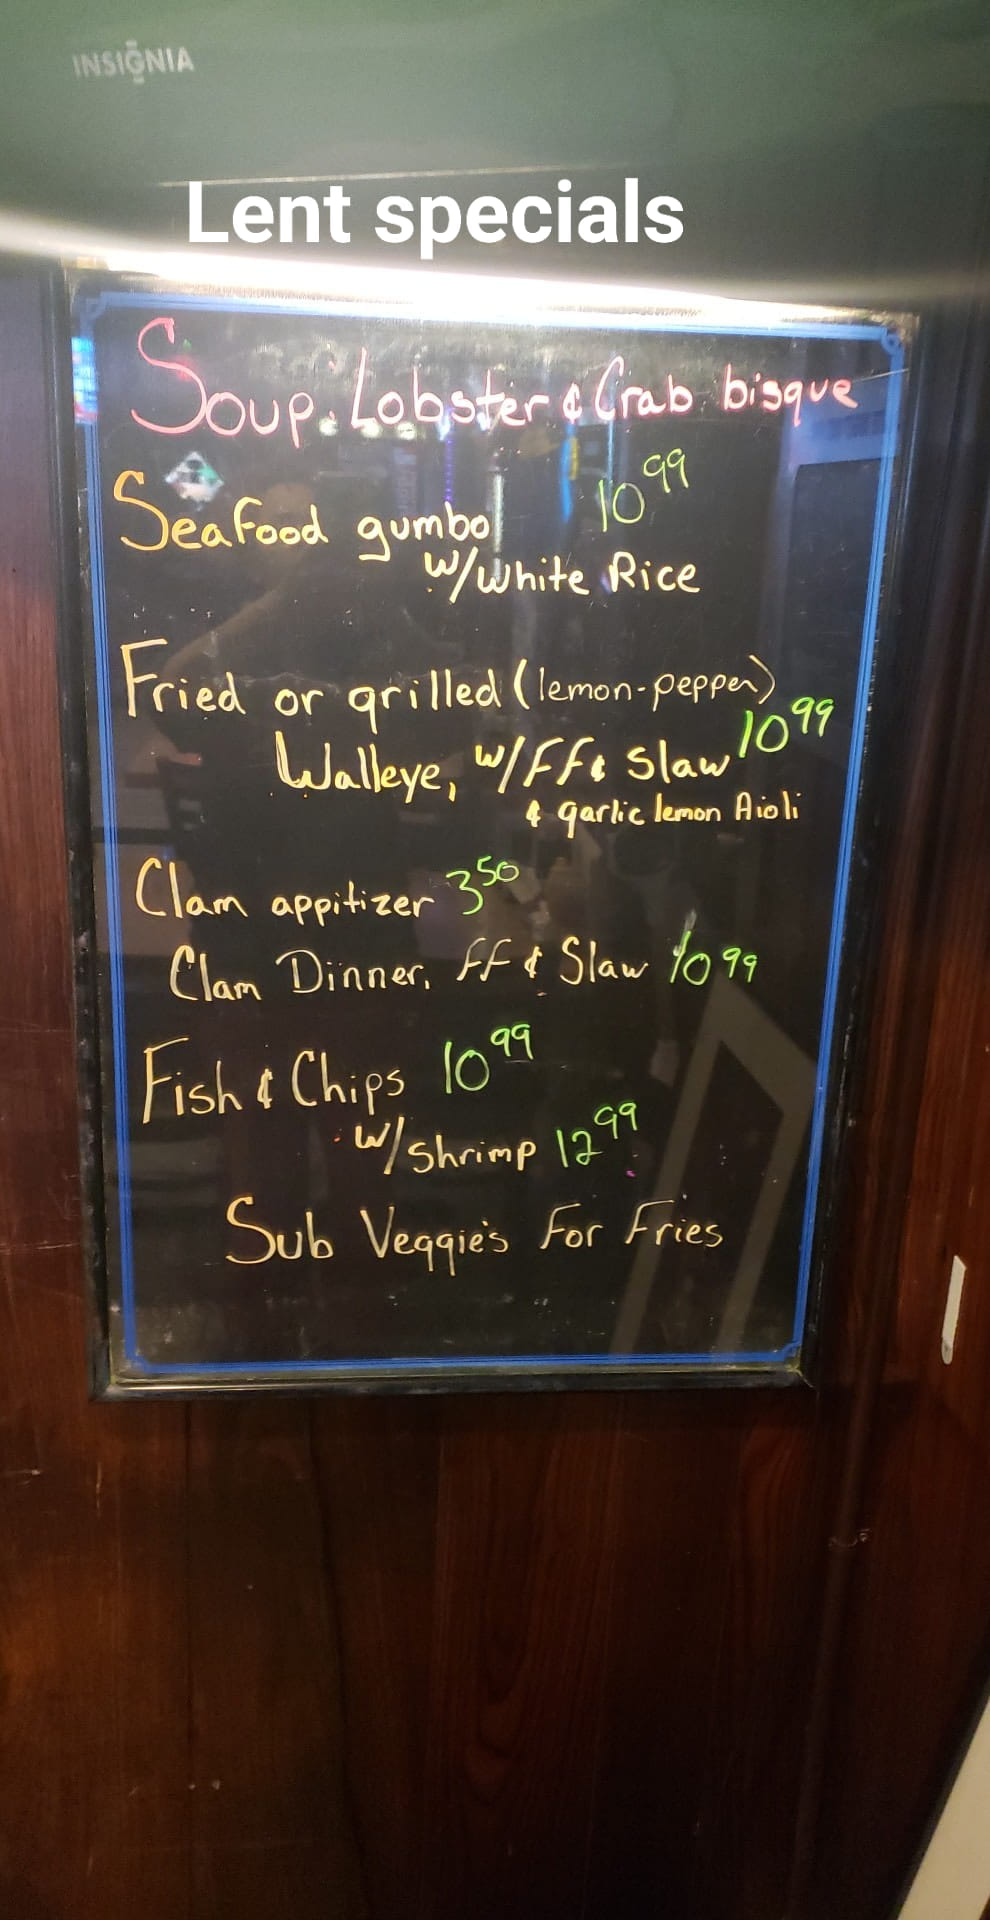 INSIGNIA
Lent specials
Soup: Lobster & Crab bisque
Seafood gumbo 10 99
w/white Rice
Fried or grilled (lemon-pepper)
Walleye, w/FF & Slaw 10 99
& garlic lemon Aioli
Clam appitizer 3 50
Clam Dinner, FF & Slaw 10 99
Fish & Chips 10 99
w/shrimp 12 99
Sub Veggie's For Fries